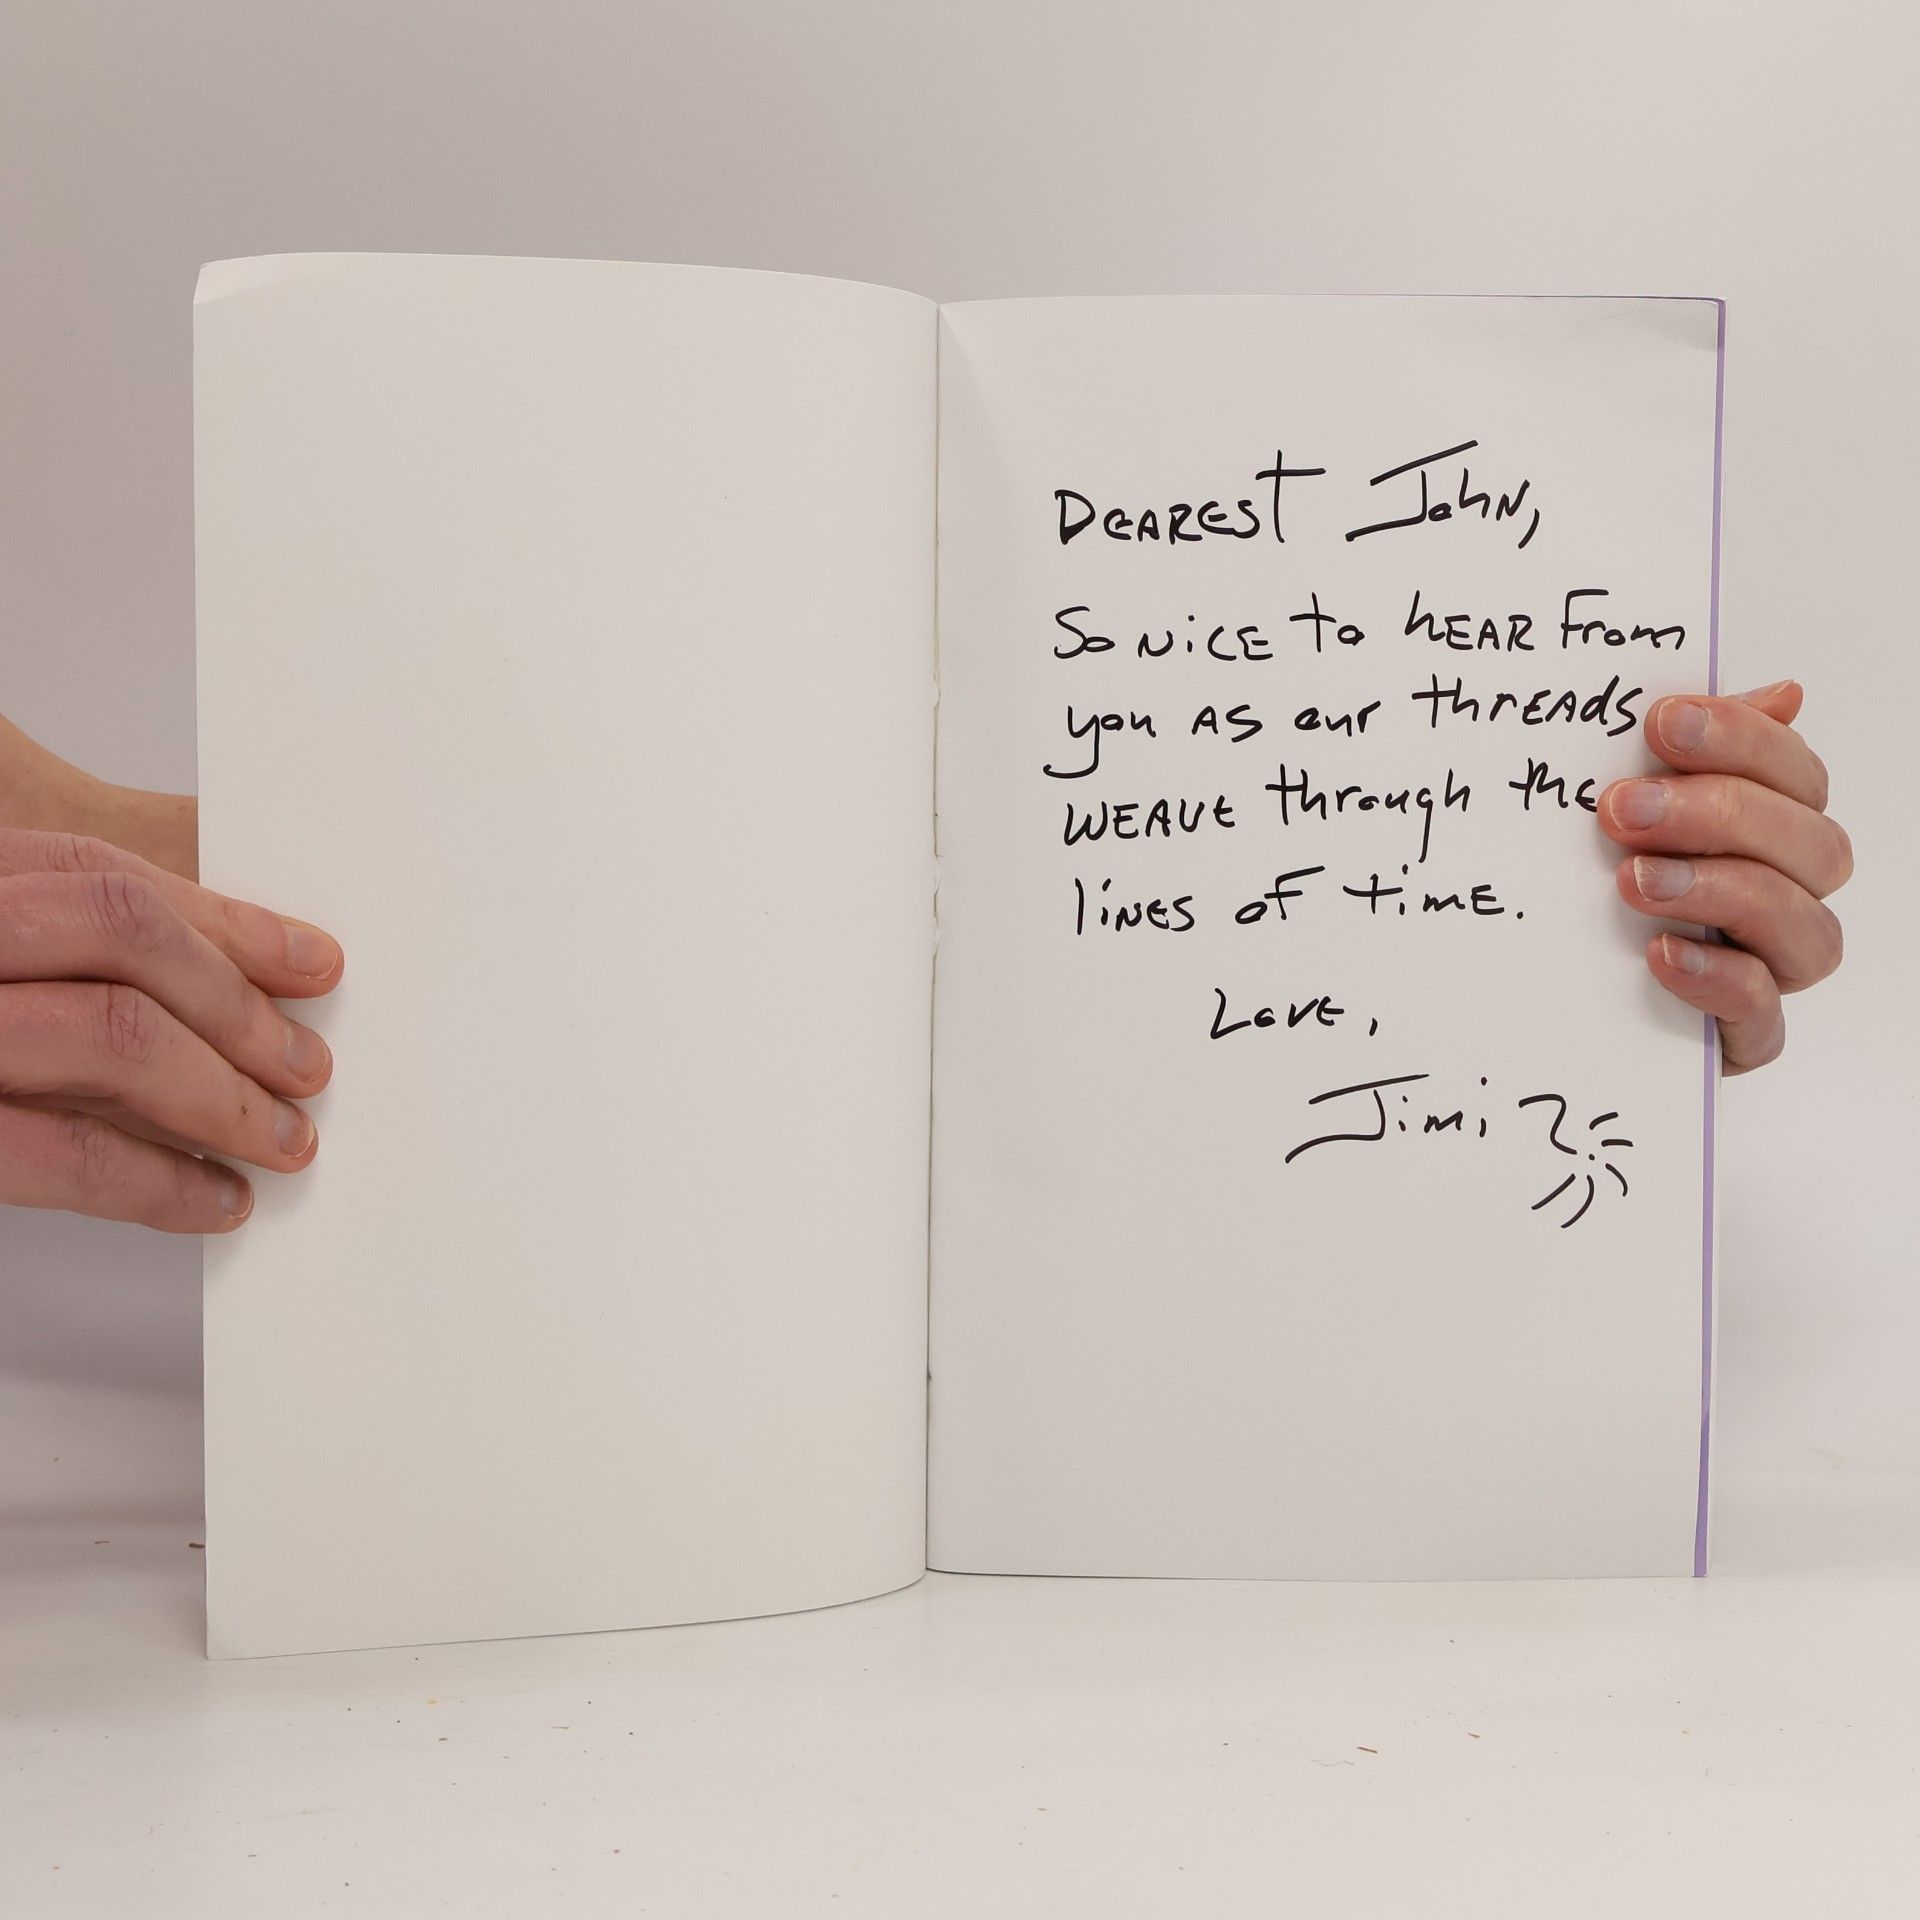 DEAREST John,
So NiCE to hEAR From
you AS our thrEAds
WEAVE through the
liNES oF timE.
Love,
Jimi